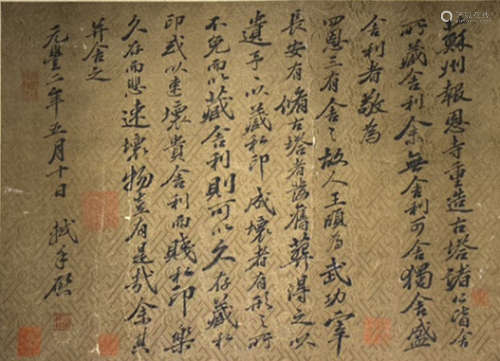 蘇州報恩寺重造古塔諸公皆舍
所藏舍利余無舍利可舍獨舍盛
舍利者敬為
四恩三有舍之故人王頤為武功宰
長安有修古塔者發舊葬得之以
遺予予以藏私印成壞者有形之所
不免而以藏舍利則可以久存藏私
印或以速壞貴舍利而賤私印樂
久存而悲速壞物豈有是哉余其
并舍之
元豐二年五月十日 軾手啟